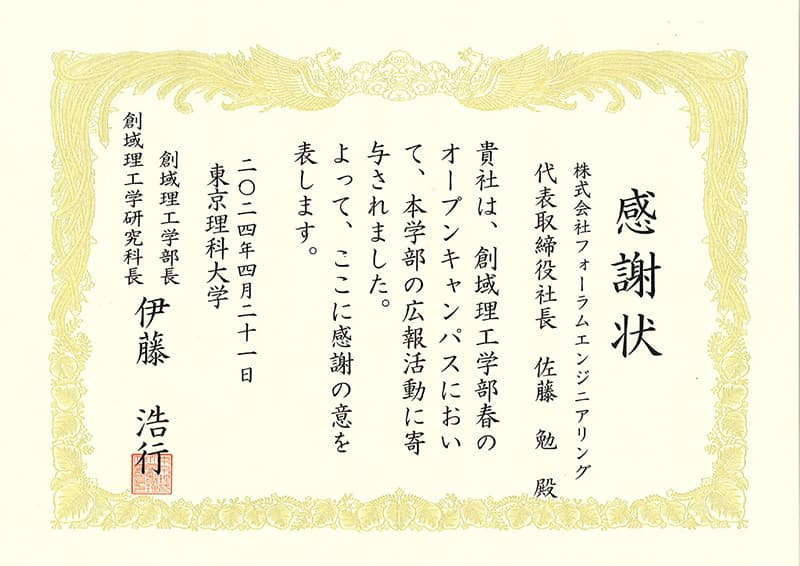 感謝状
株式会社フォーラムエンジニアリング
代表取締役社長 佐藤 勉 殿
貴社は、創域理工学部春の
オープンキャンパスにおい
て、本学部の広報活動に寄
与されました。
よって、ここに感謝の意を
表します。
二〇二四年四月二十一日
東京理科大学
創域理工学部長
創域理工学研究科長
伊藤 浩行